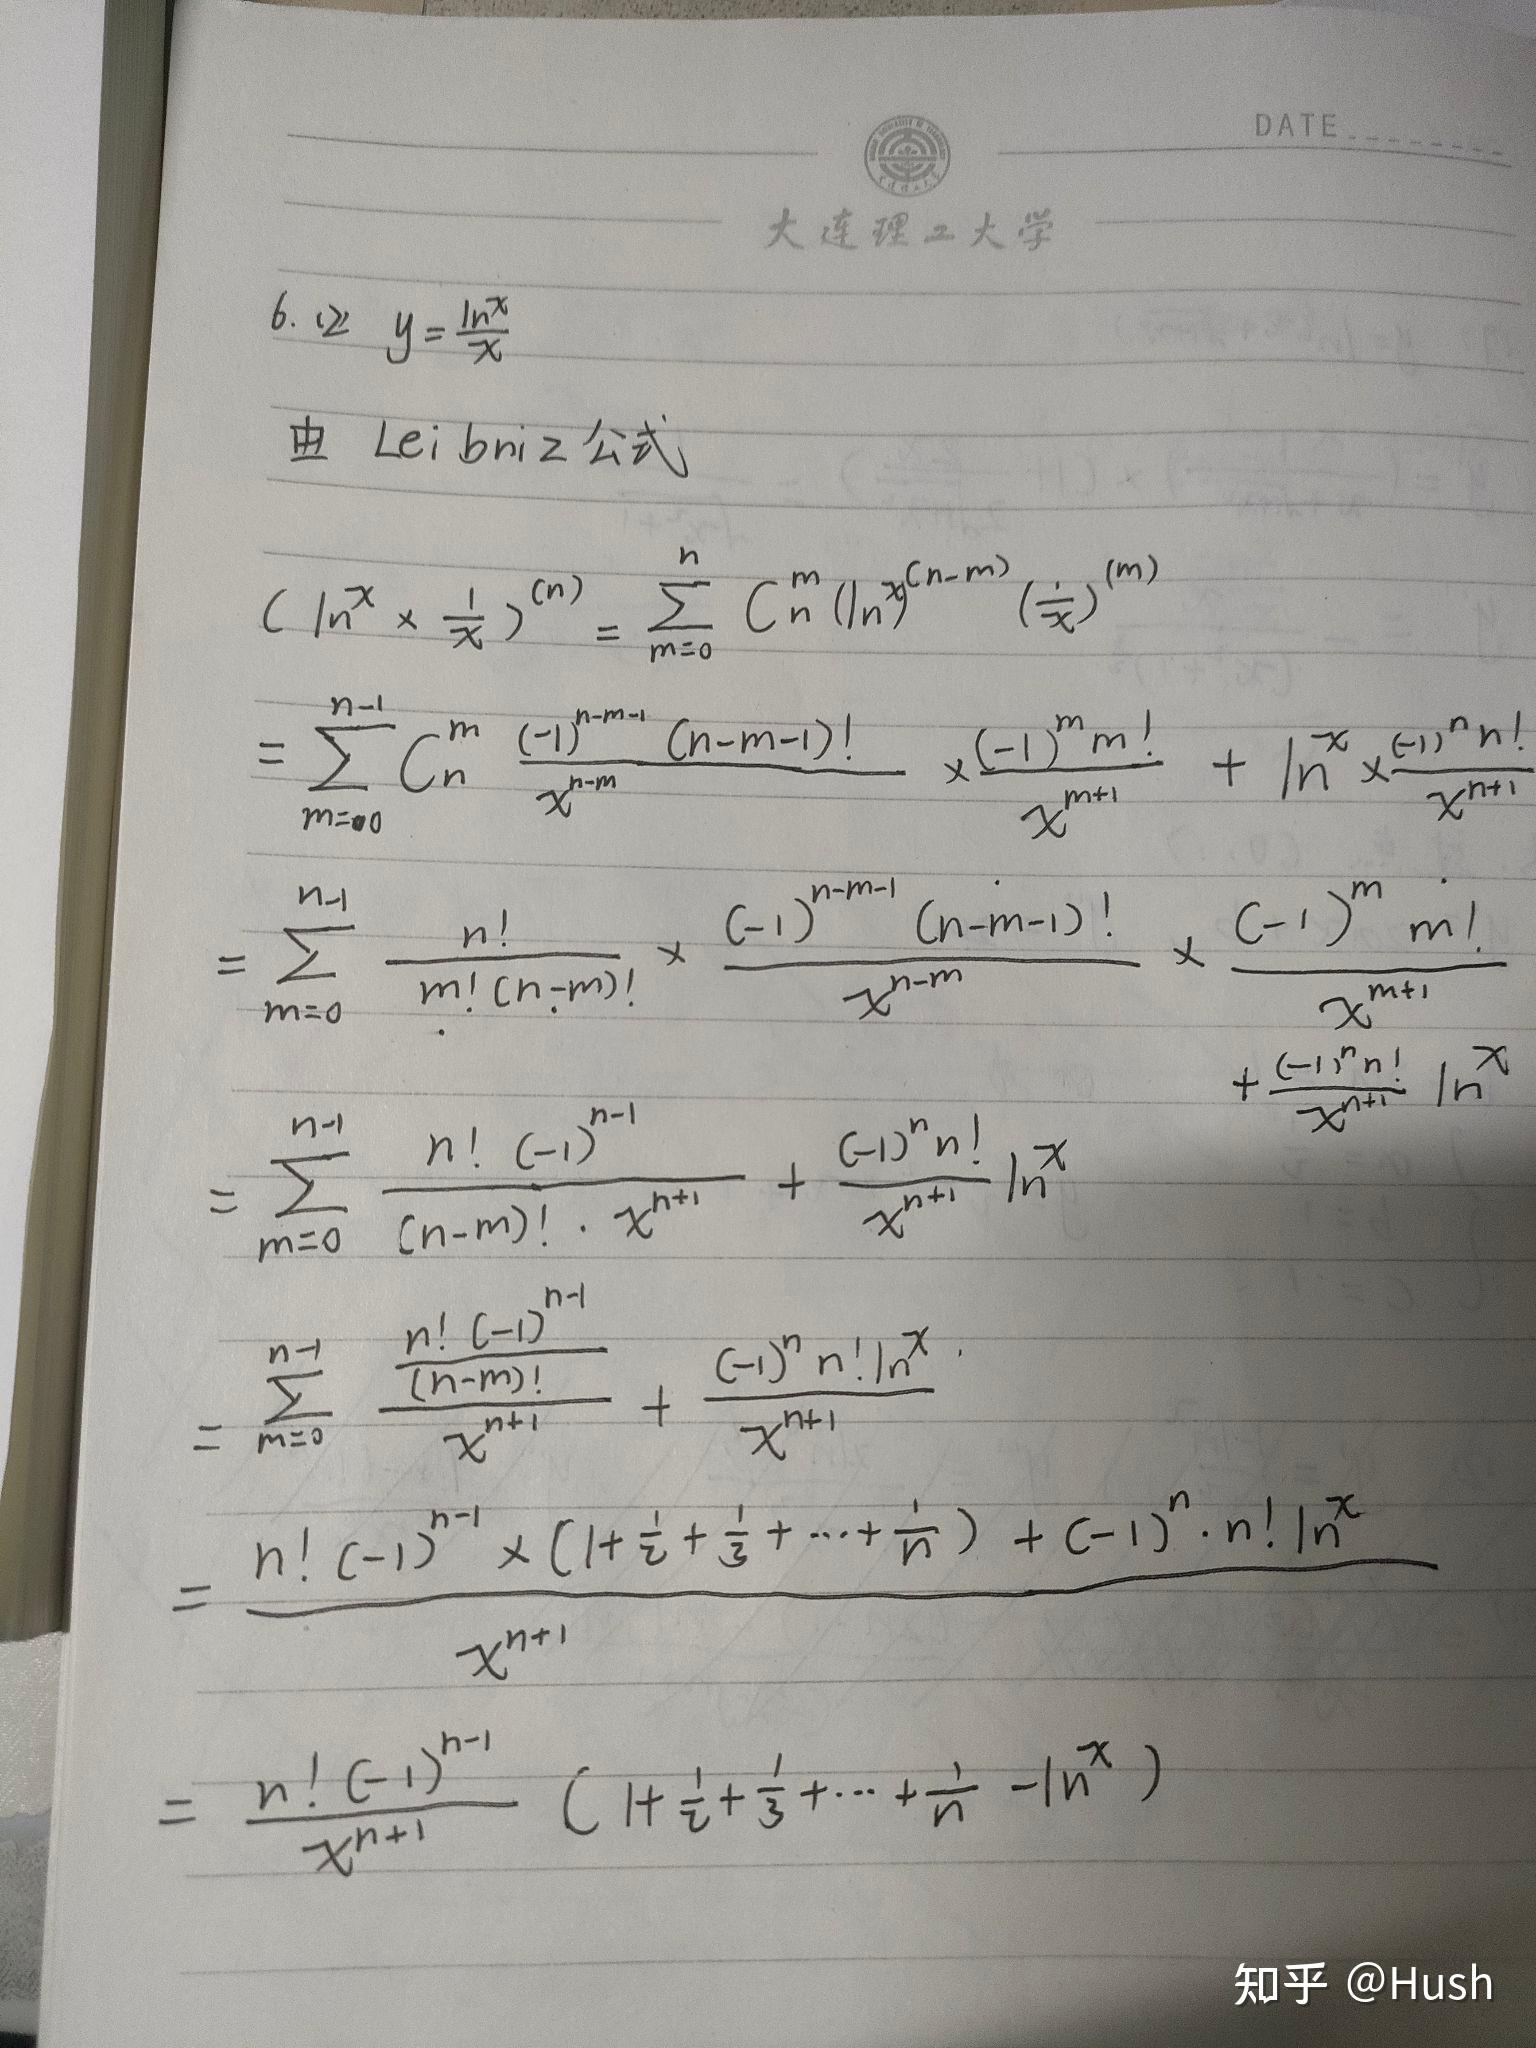 DATE
大连理工大学
6. (2) y = \frac{ln^x}{x}
由 Leibniz 公式
(ln^x × \frac{1}{x})^{(n)} = \sum_{m=0}^{n} C_n^m (ln^x)^{(n-m)} (\frac{1}{x})^{(m)}
= \sum_{m=0}^{n-1} C_n^m \frac{(-1)^{n-m-1} (n-m-1)!}{x^{n-m}} × \frac{(-1)^m m!}{x^{m+1}} + ln^x × \frac{(-1)^n n!}{x^{n+1}}
= \sum_{m=0}^{n-1} \frac{n!}{m! (n-m)!} × \frac{(-1)^{n-m-1} (n-m-1)!}{x^{n-m}} × \frac{(-1)^m m!}{x^{m+1}}
+ \frac{(-1)^n n!}{x^{n+1}} ln^x
= \sum_{m=0}^{n-1} \frac{n! (-1)^{n-1}}{(n-m)! · x^{n+1}} + \frac{(-1)^n n!}{x^{n+1}} ln^x
= \sum_{m=0}^{n-1} \frac{\frac{n! (-1)^{n-1}}{(n-m)!}}{x^{n+1}} + \frac{(-1)^n n! ln^x}{x^{n+1}}.
= \frac{n! (-1)^{n-1} × (1+\frac{1}{2}+\frac{1}{3}+···+\frac{1}{n}) + (-1)^n · n! ln^x}{x^{n+1}}
= \frac{n! (-1)^{n-1}}{x^{n+1}} (1+\frac{1}{2}+\frac{1}{3}+···+\frac{1}{n} - ln^x)
知乎 @Hush